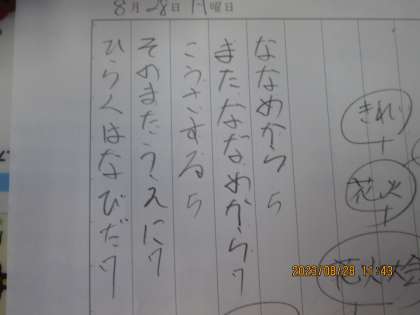 8月28日月曜日
ななめから5
またななめから7
こうさする5
そのまたうえに7
ひらくはなびだ7
きれい
+
花火
+
花火大会
2023/08/28 11:43